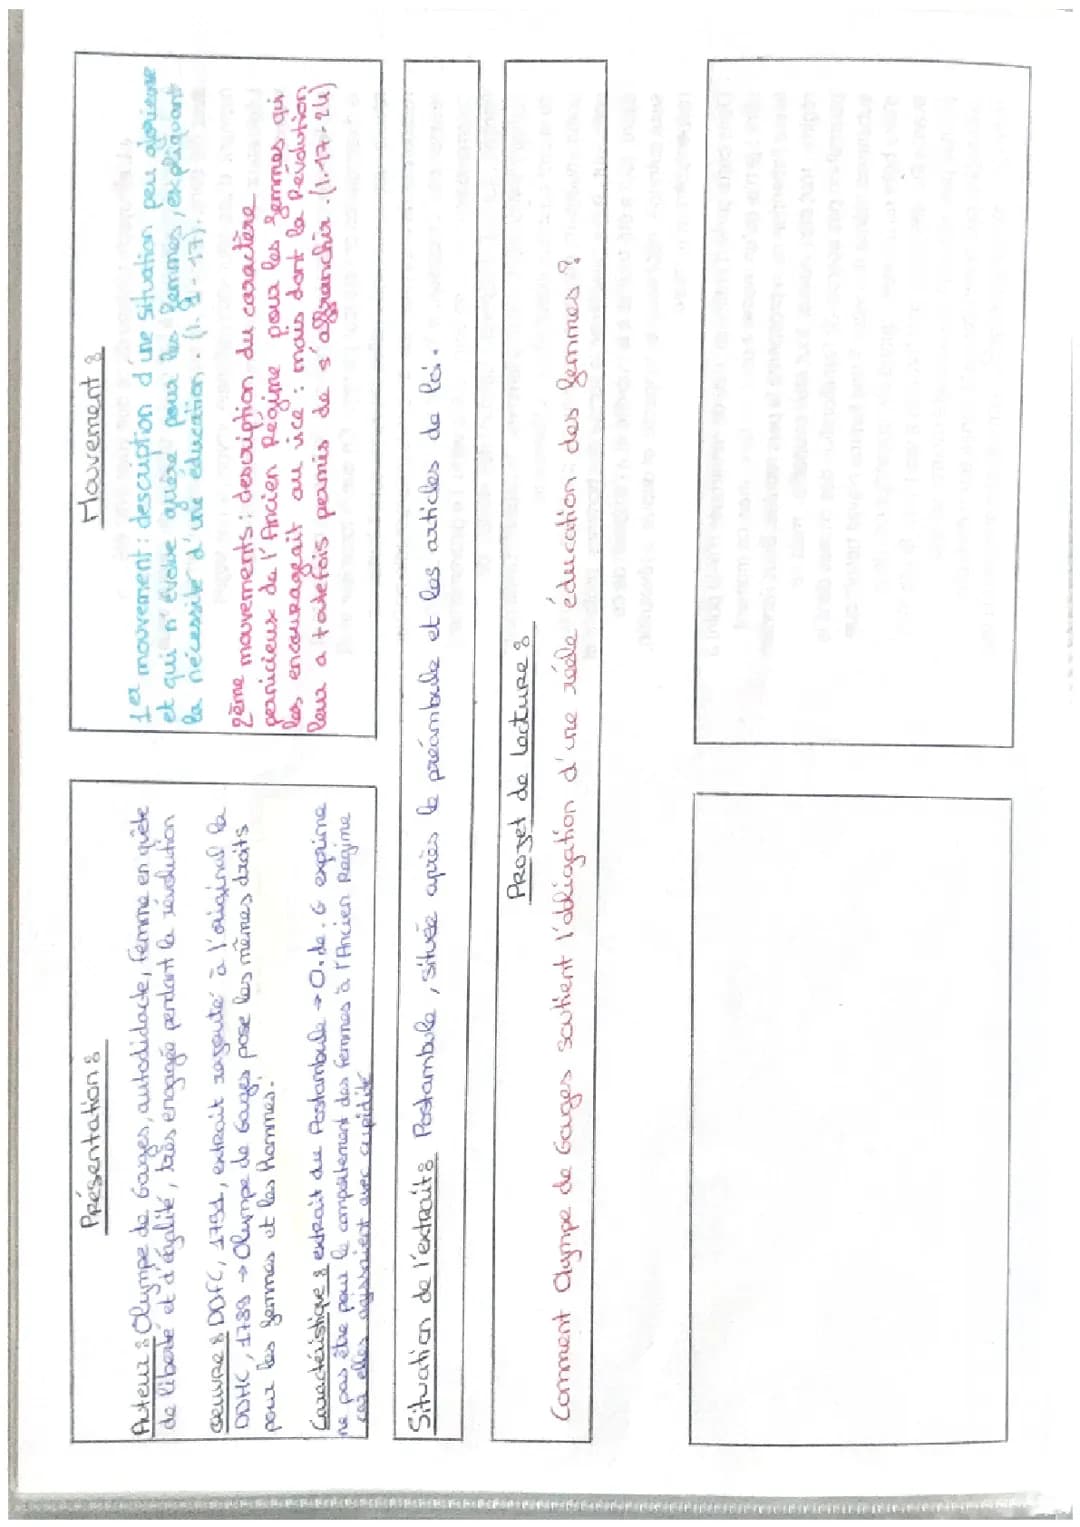 Présentation :
Auteur : Olympe de Gouges, autodidacte, femme en quête
de liberté et d'égalité, très engagée pendant la révolution
Œuvre : DDFC, 1791, extrait rajouté à l'original la
DDHC, 1789 → Olympe de Gouges pose les mêmes droits
pour les femmes et les hommes.
Caractéristique : extrait du Postambule → O. de. G exprime
ne pas être pour le comportement des femmes à l'Ancien Régime
car elles agissaient avec cupidité
Mouvement :
1er mouvement : description d'une situation peu glorieuse
et qui n'évolue guère pour les femmes, expliquant
la nécessité d'une éducation. (l. 1 - 17).
2ème mouvements : description du caractère
pernicieux de l'Ancien Régime pour les femmes qui
les encourageait au vice : mais dont la Révolution
leur a toutefois permis de s'affranchir. (l.17-24)
Situation de l'extrait : Postambule, située après le préambule et les articles de loi.
Projet de lecture :
Comment Olympe de Gouges soutient l'obligation d'une réelle éducation des femmes ?